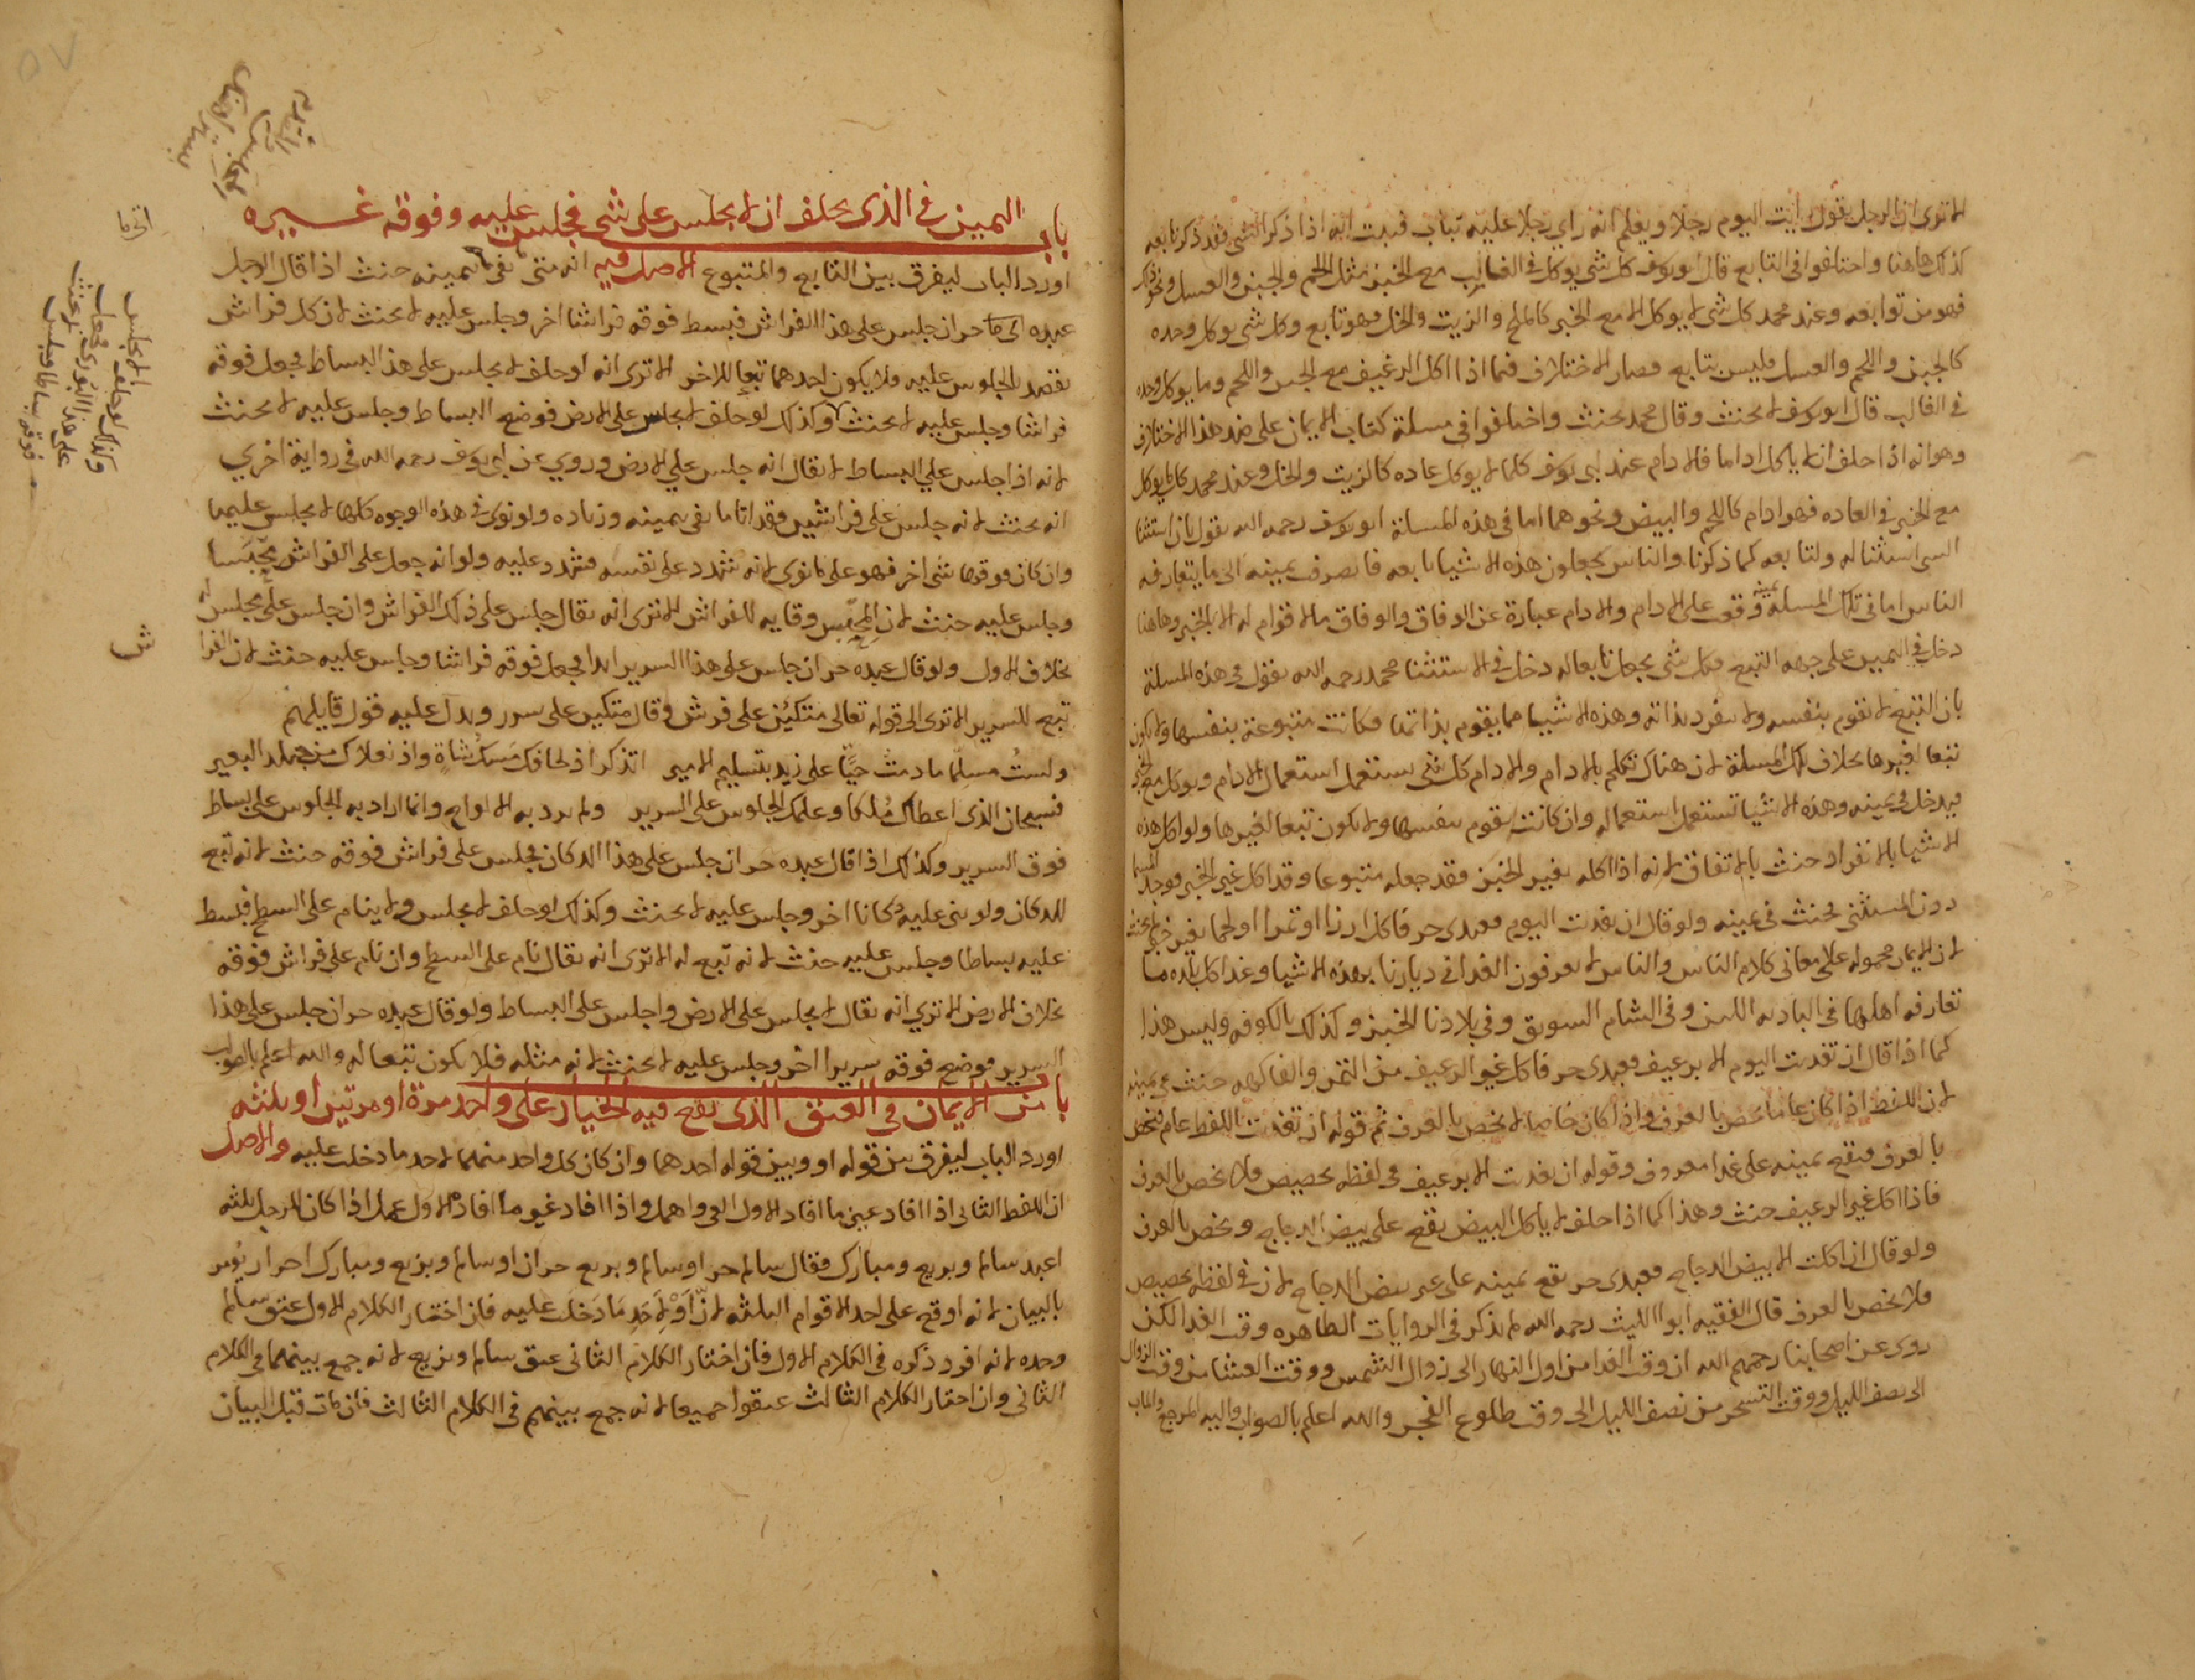 الا ترى ان الرجل يقول رايت اليوم رجلا ويعلم انه راي رجلا عليه ثياب فثبت انه اذا ذكر الشي فقد ذكر تابعه
كذلك هاهنا واختلفوا في التابع قال ابو يوسف كل شي يوكل في الغالب مع الخبز مثل اللحم والجبن والعسل ونحو ذلك
فهو من توابعه وعند محمد كل شي لا يوكل الا مع الخبز كالملح والزيت والخل فهو تابع وكل شي يوكل وحده
كالجبن واللحم والعسل فليس بتابع فصار الاختلاف فيما اذا اكل الرغيف مع الجبن واللحم وما يوكل وحده
في الغالب قال ابو يوسف لا يحنث وقال محمد يحنث واختلفوا في مسلة كتاب الايمان على ضد هذا الاختلاف
وهو انه اذا حلف ان لا ياكل اداما فالادام عند ابي يوسف كلما لا يوكل عاده كالزيت والخل وعند محمد كل ما يوكل
مع الخبز في العاده فهو ادام كاللحم والبيض ونحوهما اما في هذه المسلة ابو يوسف رحمه الله يقول بان استثنا
الشي استثنا له ولتابعه كما ذكرنا والناس يجعلون هذه الاشيا تابعه فانصرف يمينه الى ما يتعارفه
الناس اما في تلك المسلة يمينه وقعت على الادام والادام عبارة عن الوفاق والوفاق مالا قوام له الا بالخبز وهاهنا
دخل في اليمين على جهه التبع فكل شي يجعل تابعا له دخل في الاستثنا محمد رحمه الله يقول في هذه المسلة
بان التبع لا يقوم بنفسه ولا ينفرد بذاته وهذه الاشيا مما يقوم بذاتها فكانت متبوعة بنفسها ولا يكون
تبعا لغيرها بخلاف تلك المسلة لان هناك تكلم بالادام والادام كل شي يستعمل استعمال الادام ويوكل مع الخبز
فيدخل في يمينه وهذه الاشيا تستعمل استعماله وان كانت تقوم بنفسها ولا يكون تبعا لغيرها ولو اكل هذه
الاشيا بالانفراد حنث بالاتفاق لانه اذا اكله بغير الخبز فقد جعله متبوعا وقد اكل غير الخبز فوجد
دون المستثنى فحنث في يمينه ولو قال ان تغديت اليوم فعبدي حر فاكل ارزا او تمرا او لحما بغير خبز لا يحنث
لان الايمان محموله على معاني كلام الناس والناس لا يعرفون الغدا في ديارنا بهذه الاشيا وغدا كل بلده ما
تعارفه اهلها في الباديه اللبن وفي الشام السويق وفي بلادنا الخبز وكذلك بالكوفه وليس هذا
كما اذا قال ان تغديت اليوم الا برغيف فعبدي حر فاكل غير الرغيف من التمر والفاكهه حنث في يمينه
لان اللفظ اذا كان عاما يخص بالعرف واذا كان خاصا لا يخص بالعرف ثم قوله ان تغديت اللفظ عام فيخص
بالعرف فتقع يمينه على غدا معروف وقوله ان تغديت الا برغيف في لفظه تخصيص فلا يخص بالعرف
فاذا اكل غير الرغيف حنث وهذا كما اذا حلف لا ياكل البيض يقع على بيض الدجاج ويخص بالعرف
ولو قال ان اكلت الا بيض الدجاج فعبدي حر يقع يمينه على غير بيض الدجاج لان في لفظه تخصيص
فلا يخص بالعرف قال الفقيه ابو الليث رحمه الله لم يذكر في الروايات الظاهره وقت الغدا لكن
روى عن اصحابنا رحمهم الله ان وقت الغدا من اول النهار الى زوال الشمس ووقت العشا من وقت الزوال
الى نصف الليل ووقت التسحر من نصف الليل الى وقت طلوع الفجر والله اعلم بالصواب واليه المرجع والماب
باب اليمين في الذي يحلف ان لا يجلس على شي فيجلس عليه وفوقه غيره
اورد الباب ليفرق بين التابع والمتبوع الاصل فيه انه متى بقي يمينه حنث اذا قال الرجل
عبده حر ان جلس على هذا الفراش فبسط فوقه فراشا اخر وجلس عليه لا يحنث لان كل فراش
يقصد للجلوس عليه فلا يكون احدهما تبعا للاخر الا ترى انه لو حلف لا يجلس على هذا البساط فجعل فوقه
فراشا وجلس عليه لا يحنث وكذلك لو حلف لا يجلس على الارض فوضع البساط وجلس عليه لا يحنث
لانه اذا جلس علي البساط لا يقال انه جلس علي الارض وروي عن ابي يوسف رحمه الله في رواية اخري
انه يحنث لانه جلس على فراشين فقد اتا ما بقي يمينه وزياده ولو نوى في هذه الوجوه كلها لا يجلس عليها
وان كان فوقها شي اخر فهو على ما نوى لانه شدد على نفسه فشدد عليه ولو انه جعل على الفراش محبسا
وجلس عليه حنث لان المحبس وقايه للفراش الا ترى انه يقال جلس على ذلك الفراش وان جلس على مجلس له
بخلاف الاول ولو قال عبده حر ان جلس على هذا السرير ابدا فجعل فوقه فراشا وجلس عليه حنث لان الفرا
ش
تبع للسرير الا ترى الى قوله تعالى متكئين على فرش وقال متكين على سرر ويدل عليه قول قايلهم
ولستُ مسلّما ما دمت حيًّا على زيد بتسليم الامير اتذكر اذ لحافك مَسكُ شاةٍ واذ نعلاك من جلد البعير
فسبحان الذي اعطاك مُلكا وعلمك الجلوس على السرير ولم يرد به الالواح وانما اراد به الجلوس على بساط
فوق السرير وكذلك اذا قال عبده حر ان جلس على هذا الدكان فجلس على فراش فوقه حنث لانه تبع
للدكان ولو بنى عليه دكانا اخر وجلس عليه لا يحنث وكذلك لو حلف لا يجلس ولا ينام على السطح فبسط
عليه بساطا وجلس عليه حنث لانه تبع له الا ترى انه يقال نام على السطح وان نام على فراش فوقه
بخلاف الارض الا تري انه يقال لا يجلس على الارض واجلس على البساط ولو قال عبده حر ان جلس على هذا
السرير فوضع فوقه سريرا اخر وجلس عليه لا يحنث لانه مثله فلا يكون تبعا له والله اعلم بالصواب
باب من الايمان في العتق الذي يقع فيه الخيار على واحد مرة او مرتين او ثلثه
اورد الباب ليفرق بين قوله او وبين قوله احدهما وان كان كل واحد منهما لاحد ما دخلت عليه والاصل
ان اللفظ الثاني اذا افاد عين ما افاد الاول الغي واهمل واذا افاد غير ما افاده الاول عمل اذا كان للرجل ثلثه
اعبد سالم وبزيع ومبارك فقال سالم حر او سالم وبزيع حران او سالم وبزيع ومبارك احرار يُومر
بالبيان لانه اوقع على احد الاقوام الثلثه لانّ أوْ لاحدِ مَا دَخَلت عليه فان اختار الكلام الاول عتق سالم
وحده لانه افرد ذكره في الكلام الاول فان اختار الكلام الثاني عتق سالم وبزيع لانه جمع بينهما في الكلام
الثاني وان اختار الكلام الثالث عتقوا جميعا لانه جمع بينهم في الكلام الثالث فان مات قبل البيان
وكذلك لو حلف لا يجلس
على هذا
فوقه بساطا وجلس